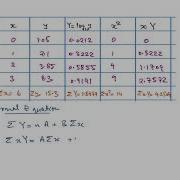 x y Y=log₁₀y x² xY
0 1.05 0.0212 0 0
1 2.1 0.3222 1 0.3222
2 3.85 0.5855 4 1.1709
3 8.3 0.9191 9 2.7572
Σx = 6 Σy = 15.3 Σx² = 14
Equation
ΣY = nA + BΣx
ΣxY = AΣx +